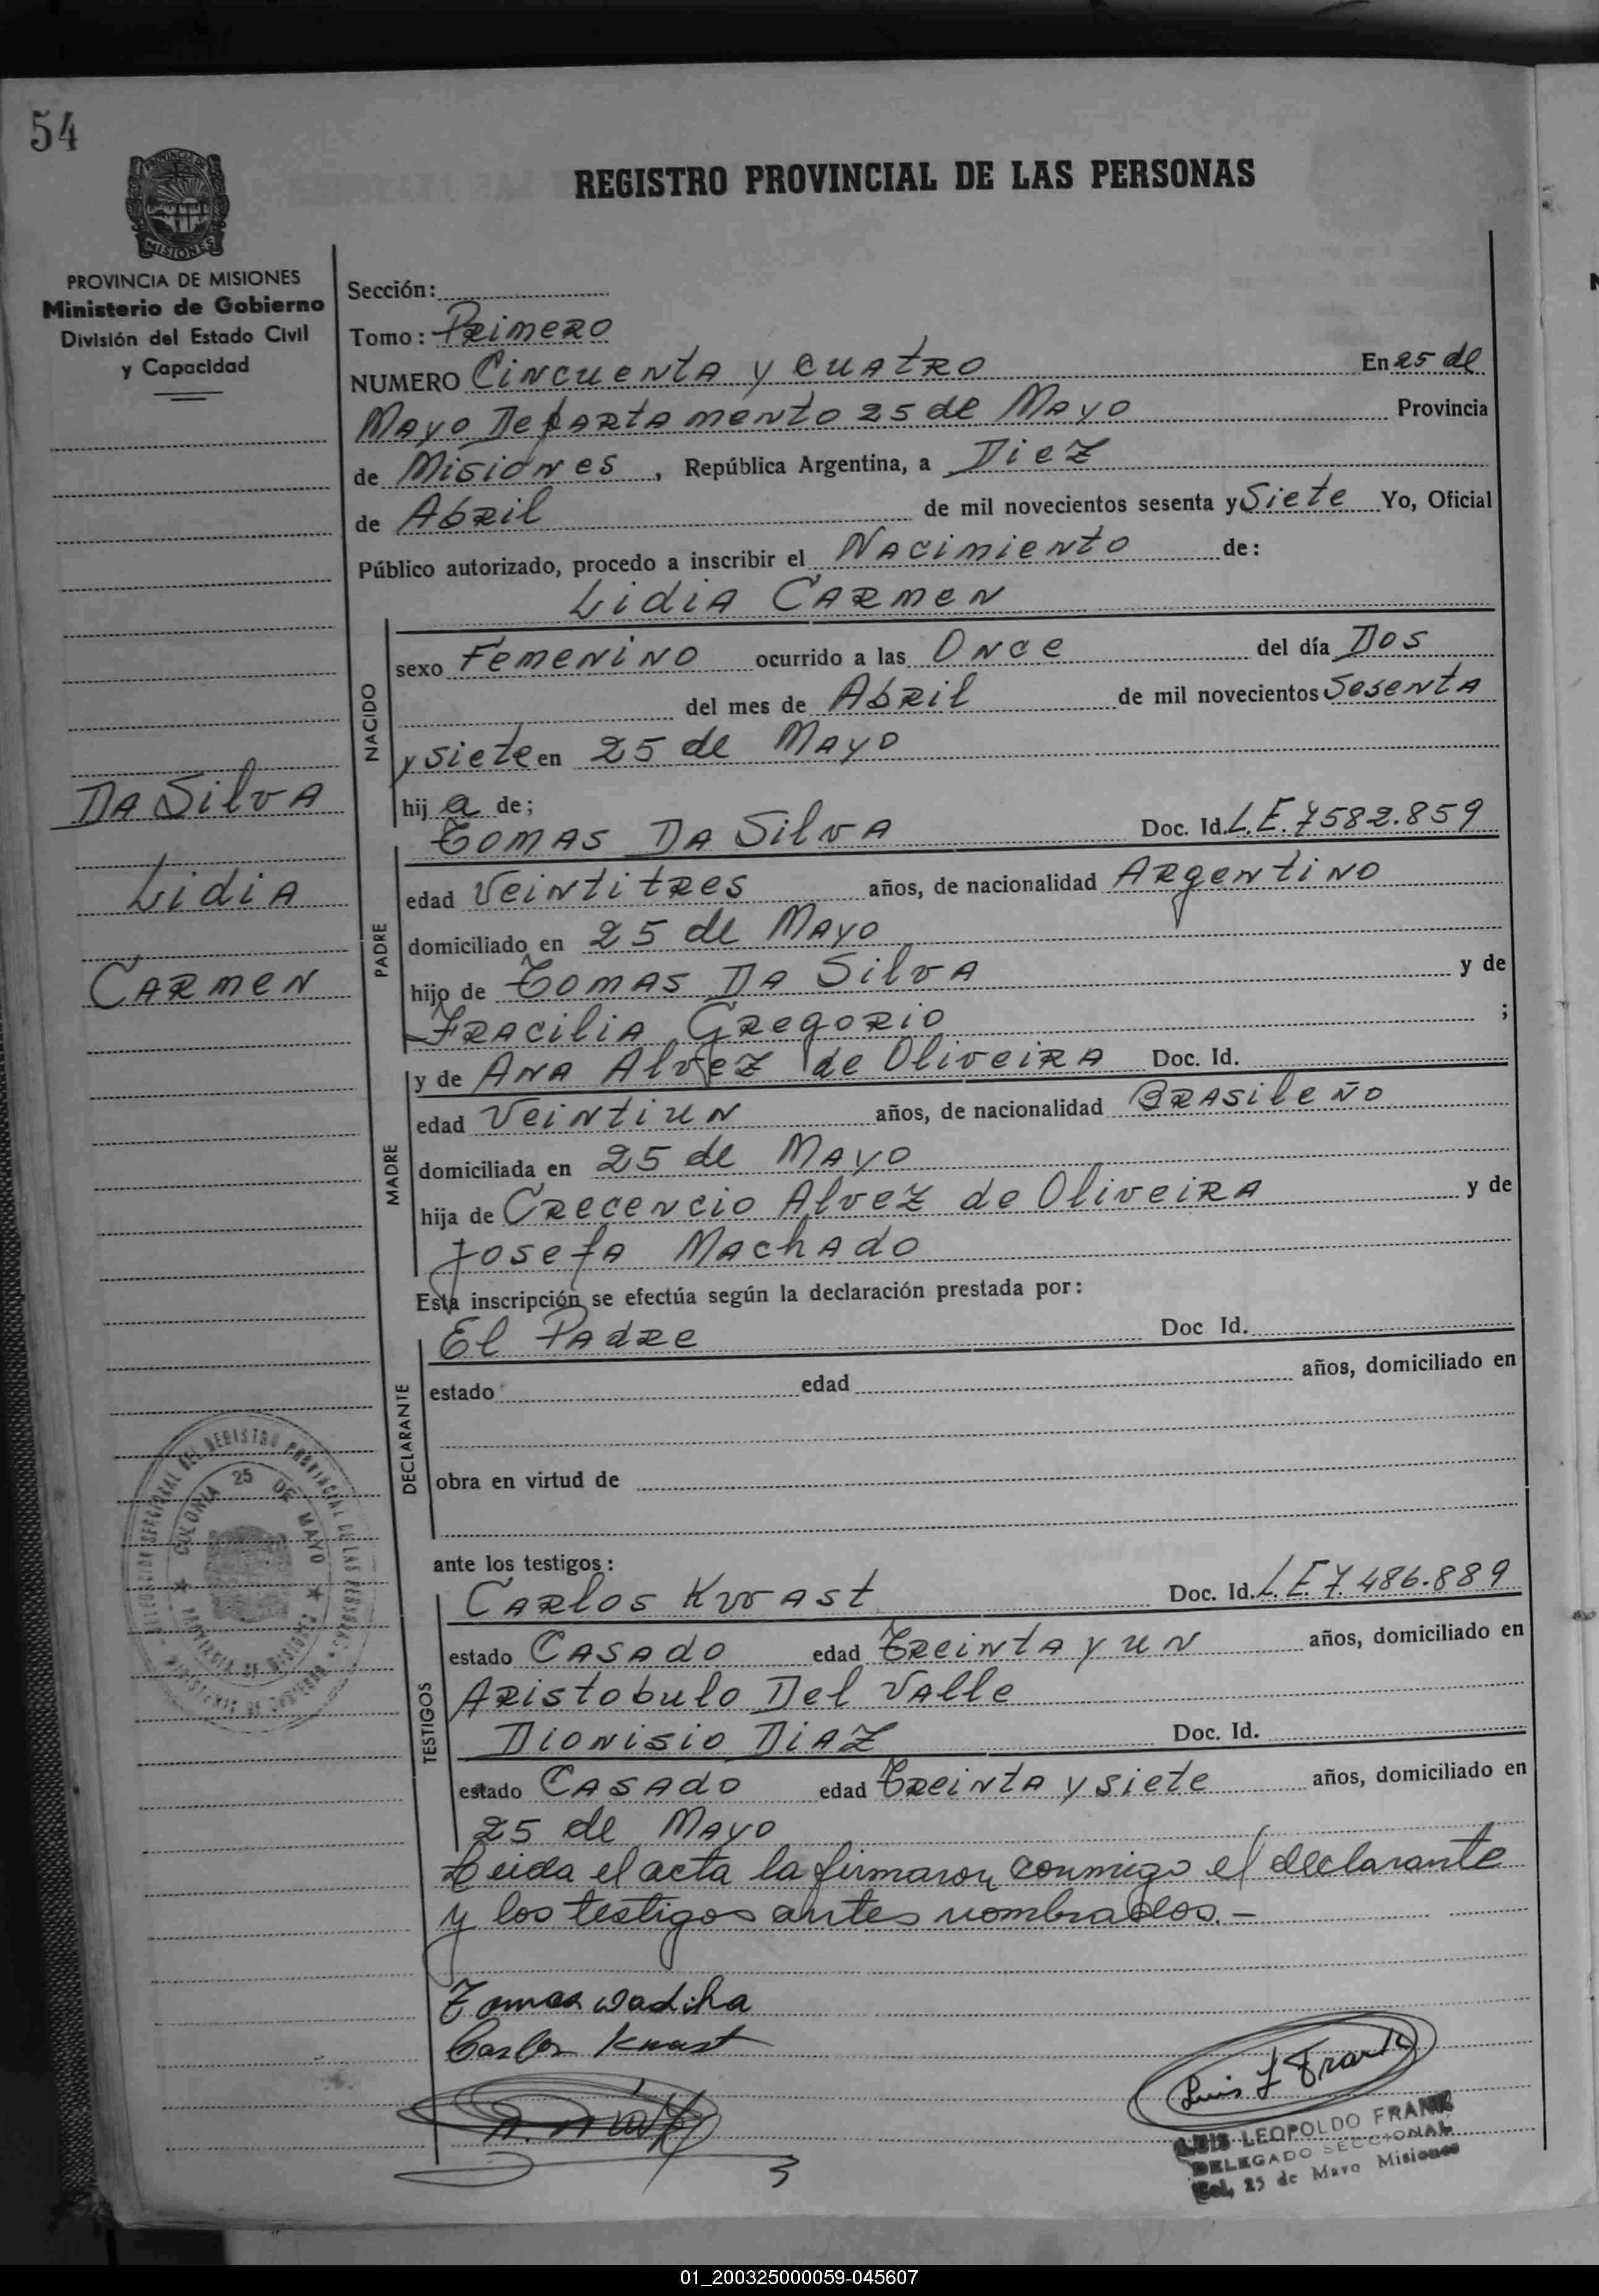 54
PROVINCIA DE
MISIONES
REGISTRO PROVINCIAL DE LAS PERSONAS
PROVINCIA DE MISIONES
Ministerio de Gobierno
División del Estado Civil
y Capacidad
Sección:
Tomo: Primero
NUMERO Cincuenta y cuatro En 25 de
Mayo Departamento 25 de Mayo Provincia
de Misiones, República Argentina, a Diez
de Abril de mil novecientos sesenta y Siete Yo, Oficial
Público autorizado, procedo a inscribir el Nacimiento de:
Lidia Carmen
NACIDO
sexo Femenino ocurrido a las Once del día Dos
del mes de Abril de mil novecientos Sesenta
y siete en 25 de Mayo
hija de;
Da Silva
Lidia
Carmen
PADRE
Tomas Da Silva Doc. Id. L.E. 7582.859
edad Veintitres años, de nacionalidad Argentino
domiciliado en 25 de Mayo
hijo de Tomas Da Silva y de
Fracilia Gregorio ;
MADRE
y de Ana Alvez de Oliveira Doc. Id.
edad Veintiun años, de nacionalidad Brasileño
domiciliada en 25 de Mayo
hija de Crecencio Alvez de Oliveira y de
Josefa Machado
Esta inscripción se efectúa según la declaración prestada por:
DECLARANTE
El Padre Doc Id.
estado edad años, domiciliado en
obra en virtud de
ante los testigos:
TESTIGOS
Carlos Kwast Doc. Id. L.E 7.486.889
estado Casado edad Treinta y un años, domiciliado en
Aristobulo Del Valle
Dionisio Diaz Doc. Id.
estado Casado edad Treinta y siete años, domiciliado en
25 de Mayo
Leida el acta la firmaron conmigo el declarante
y los testigos antes nombrados.-
DEL REGISTRO PROVINCIAL DE LAS PERSONAS
COLONIA 25 DE MAYO
PROVINCIA DE MISIONES
Tomas
Carlos Kwast
Luis L Frank
LUIS LEOPOLDO FRANK
DELEGADO SECCIONAL
Col. 25 de Mayo Misiones
01_200325000059-045607